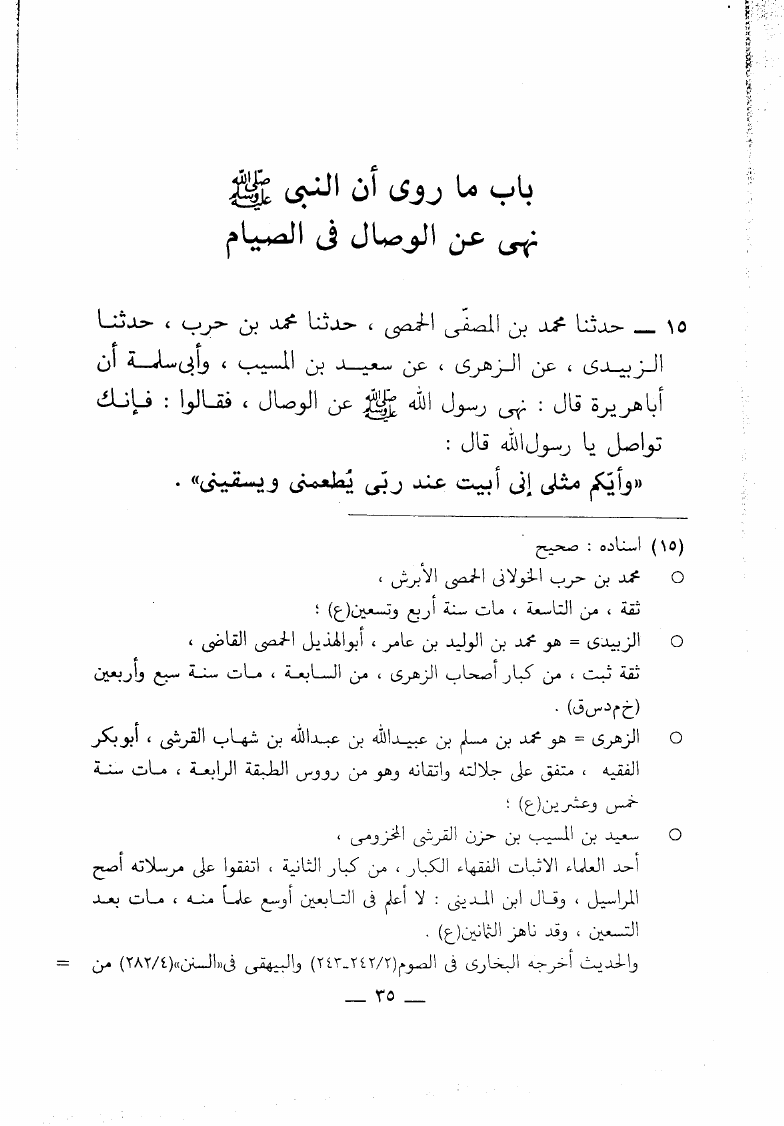 باب ما روى أن النبى ﷺ
نهى عن الوصال فى الصيام
١٥ — حدثنا محمد بن المصفّى الحمصى ، حدثنا محمد بن حرب ، حدثنا
الزبيدى ، عن الزهرى ، عن سعيد بن المسيب ، وأبى سلمة أن
أباهريرة قال : نهى رسول الله ﷺ عن الوصال ، فقالوا : فإنك
تواصل يا رسول الله قال :
«وأيّكم مثلى إنى أبيت عند ربّى يُطعمنى ويسقينى» .
(١٥) اسناده : صحيح
○ محمد بن حرب الخولانى الحمصى الأبرش ،
ثقة ، من التاسعة ، مات سنة أربع وتسعين(ع) ؛
○ الزبيدى = هو محمد بن الوليد بن عامر ، أبوالهذيل الحمصى القاضى ،
ثقة ثبت ، من كبار أصحاب الزهرى ، من السابعة ، مات سنة سبع وأربعين
(خ‌م‌د‌س‌ق) .
○ الزهرى = هو محمد بن مسلم بن عبيدالله بن عبدالله بن شهاب القرشى ، أبوبكر
الفقيه ، متفق على جلالته واتقانه وهو من رووس الطبقة الرابعة ، مات سنة
خمس وعشرين(ع) ؛
○ سعيد بن المسيب بن حزن القرشى المخزومى ،
أحد العلماء الاثبات الفقهاء الكبار ، من كبار الثانية ، اتفقوا على مرسلاته أصح
المراسيل ، وقال ابن المدينى : لا أعلم فى التابعين أوسع علماً منه ، مات بعد
التسعين ، وقد ناهز الثمانين(ع) .
والحديث أخرجه البخارى فى الصوم(٢٤٢/٢-٢٤٣) والبيهقى فى«السنن»(٢٨٢/٤) من =
— ٣٥ —